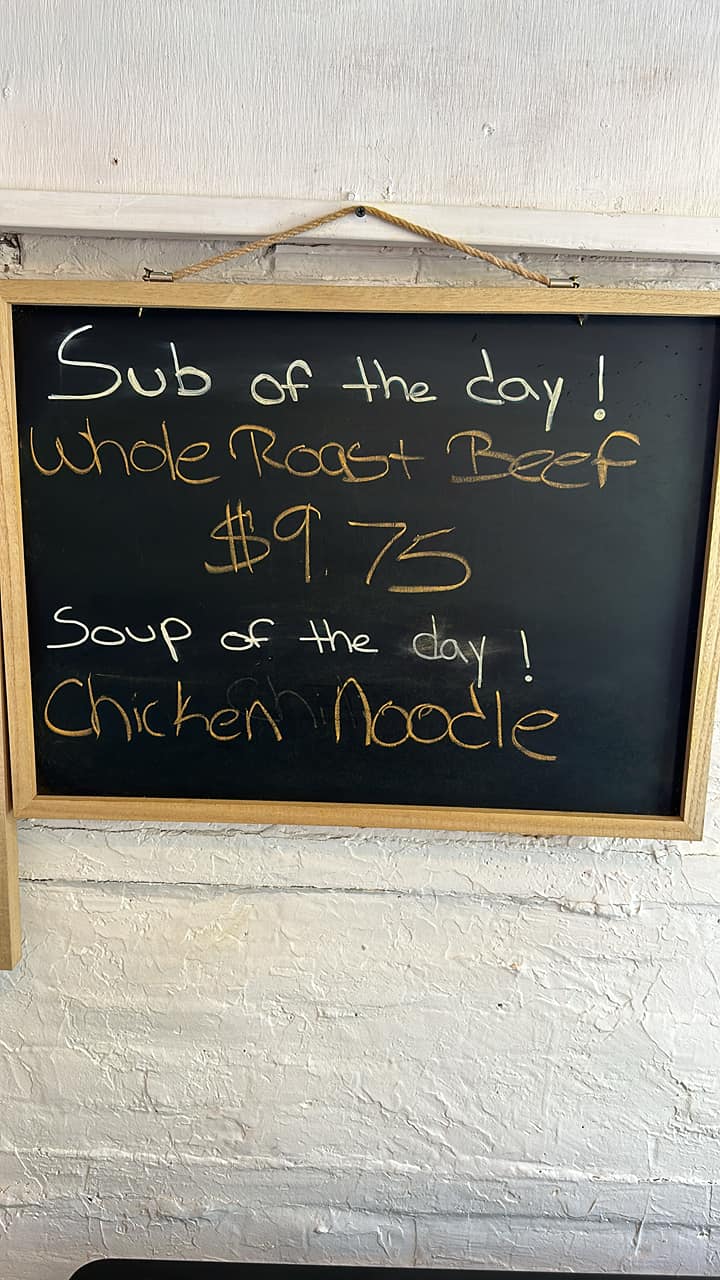 Sub of the day!
Whole Roast Beef
$9.75
Soup of the day!
Chicken Noodle